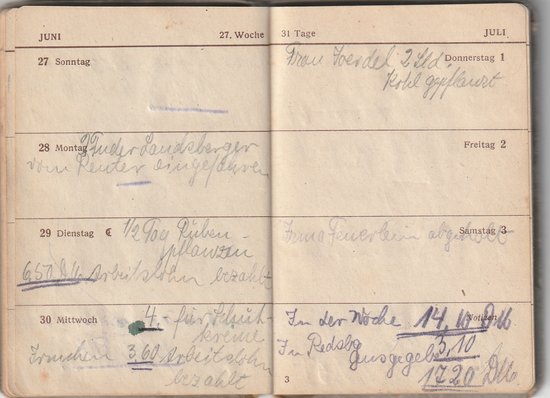 JUNI 27. Woche
27 Sonntag
28 Montag Fuder Landsberger
vom Reuter eingefahren
29 Dienstag ☾ 1/2 Tag Rüben-
pflanzen
6,50 DM Arbeitslohn bezahlt
30 Mittwoch 4,- für Schuh-
kreme
3,60 Arbeitslohn
bezahlt
31 Tage JULI
Frau 2 Std. Donnerstag 1
Kohl gepflanzt
Freitag 2
Firma Feuerlein abgeholt Samstag 3
In der Woche 14,10 DM Notizen
In ausgegeben 3,10
17,20 DM
3